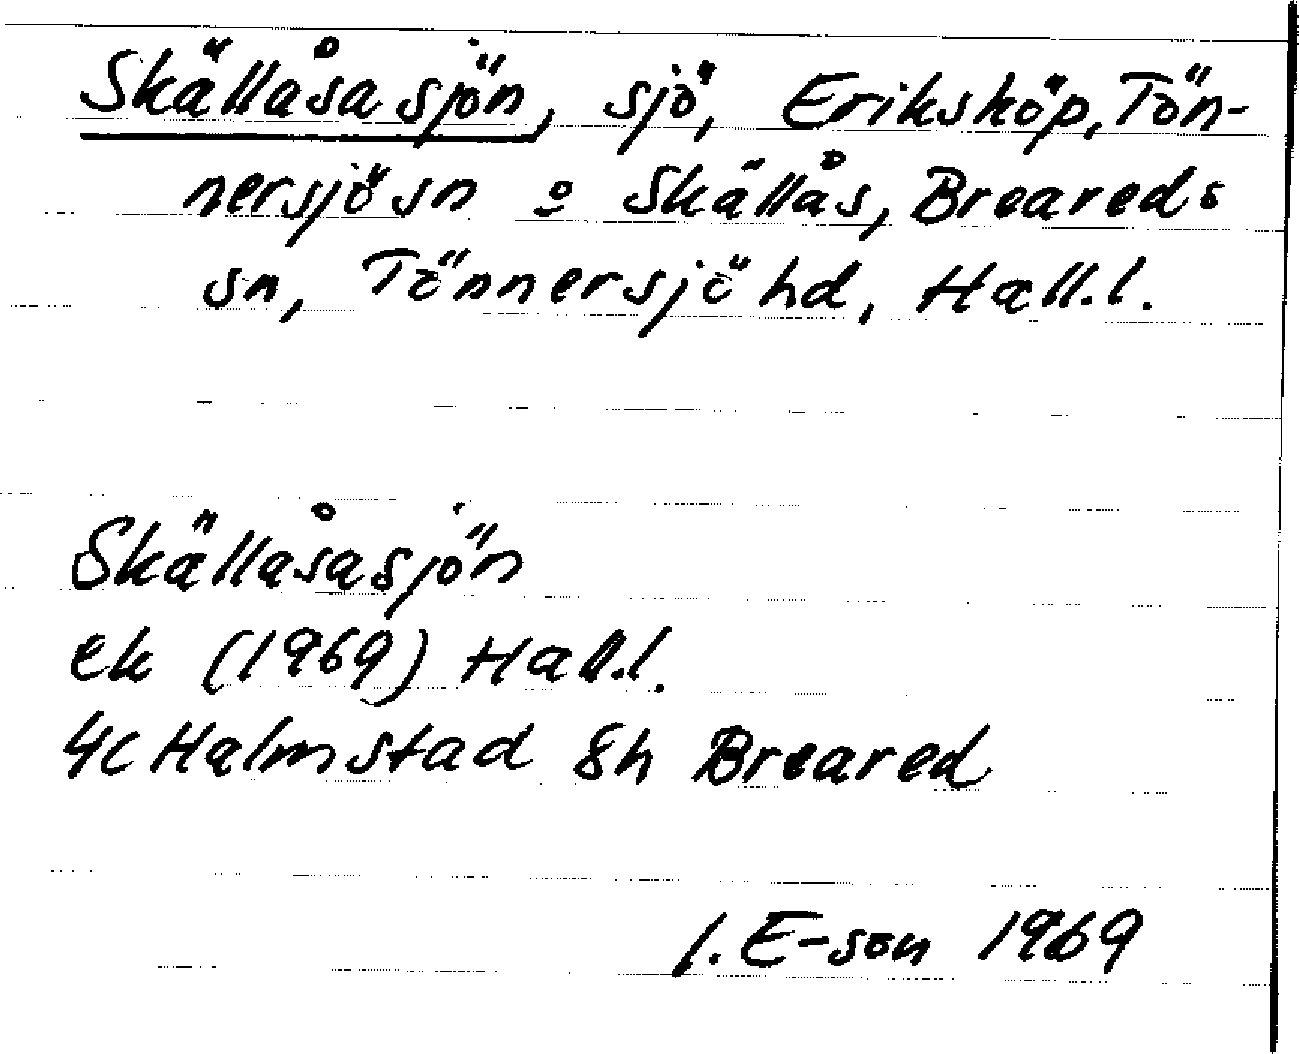 Skällåsasjön, sjö, Eriksköp, Tön-
nersjö sn o Skällås, Breareds
sn, Tönnersjö hd, Hall.l.
Skällåsasjön
ek (1969) Hall.l.
4C Halmstad 8h Breared
I. E-son 1969